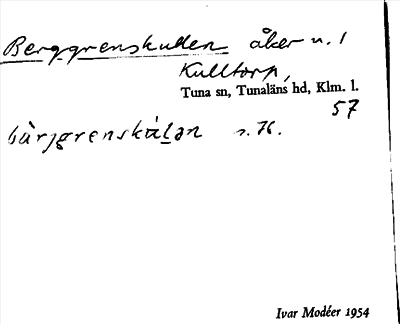 Berggrenskullen åker n. 1
Kulltorp,
Tuna sn, Tunaläns hd, Klm. l.
57
bàrjgrenskàlən s. 76.
Ivar Modéer 1954